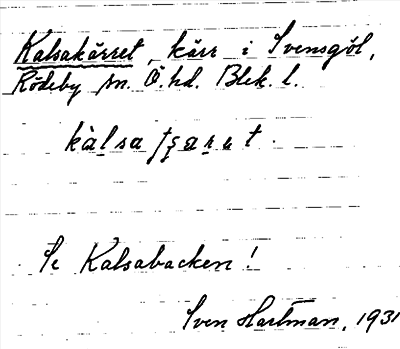 Kalsakärret, kärr i Svensgöl,
Rödeby sn. Ö. hd. Blek. l.
Se Kalsabacken!
Sven Hartman, 1931